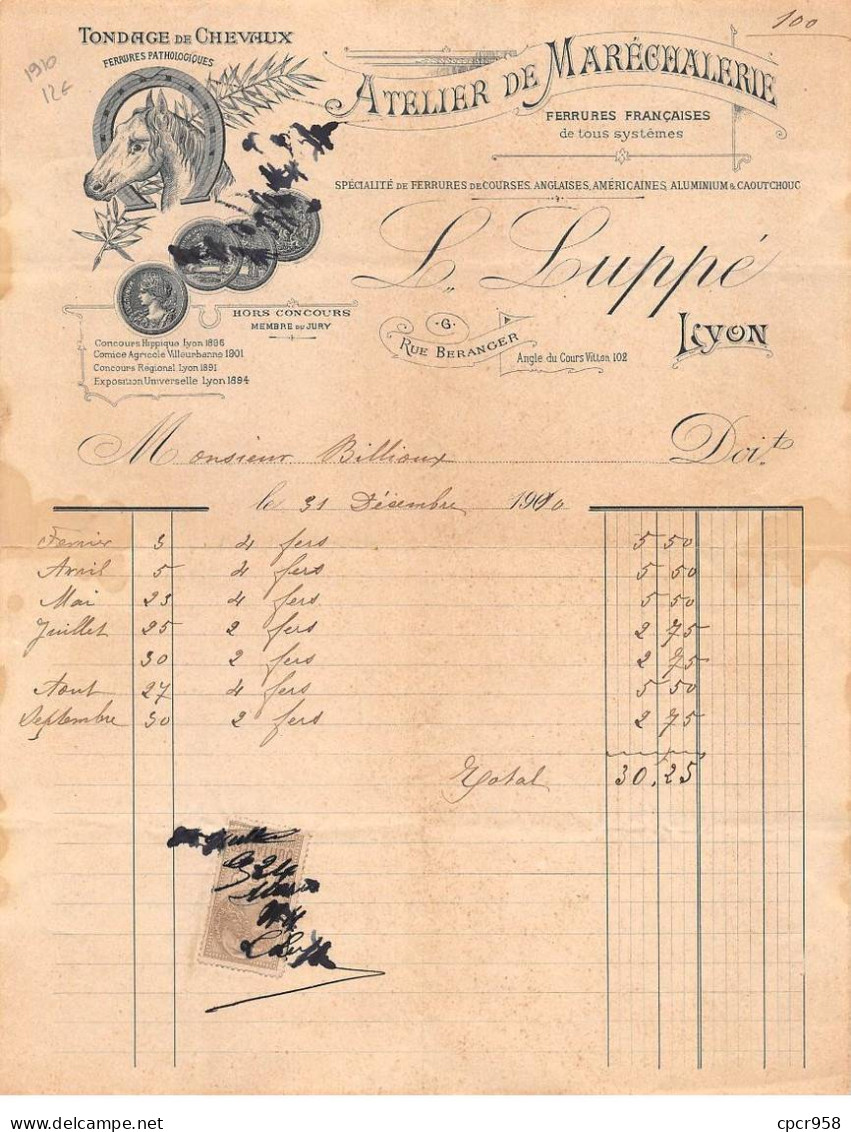 100
1910
12€
TONDAGE DE CHEVAUX
FERRURES PATHOLOGIQUES
ATELIER DE MARÉCHALERIE
FERRURES FRANÇAISES
de tous systèmes
SPÉCIALITÉ DE FERRURES DE COURSES, ANGLAISES, AMÉRICAINES, ALUMINIUM & CAOUTCHOUC
L. Luppé
HORS CONCOURS
MEMBRE DU JURY
6
RUE BERANGER
LYON
Angle du Cours Vitton, 102
Concours Hippique Lyon 1896
Comice Agricole Villeurbanne 1901
Concours Régional Lyon 1891
Exposition Universelle Lyon 1894
Monsieur Billioux Doit
le 31 Décembre 1910
Fevrier 3 4 fers 5 50
Avril 5 4 fers 5 50
Mai 23 4 fers 5 50
Juillet 25 2 fers 2 75
30 2 fers 2 75
Aout 27 4 fers 5 50
Septembre 30 2 fers 2 75
Total 30,25
24
cpcr958